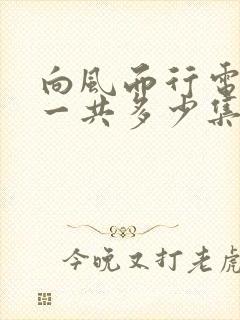 向风而行电
一共多少集
今晚又打老虎